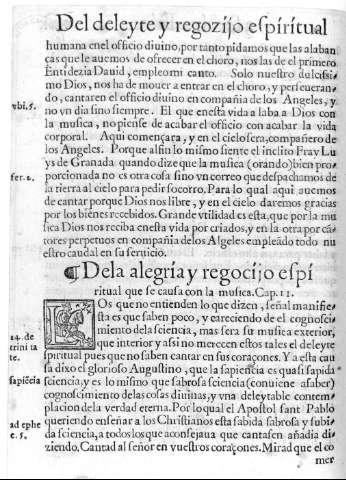 Del deleyte y regozijo espiritual
humana enel officio diuino, por tanto pidamos que las alaban
ças que le auemos de ofrecer en el choro, nos las de el primero.
Enti dezia Dauid, empleo mi canto. Solo nuestro dulcissi
mo Dios, nos ha de mouer a entrar en el choro, y perseueran-
vbi. s.
do, cantaren el officio diuino en compañia de los Angeles, y
no vn dia sino siempre. El que enesta vida alaba a Dios con
la musica, no piense de acabar el officio con acabar la vida
corporal. Aqui començara, y en el cielo sera, compañero de
los Angeles. Porque al fin lo mismo siente el inclito Fray Lu
ys de Granada quando dize que la musica (orando) bien pro
fer. 2.
porcionada no es otra cosa sino vn correo que despachamos de
la tierra al cielo para pedir socorro. Para lo qual aqui auemos
de cantar porque Dios nos libre, y en el cielo daremos gracias
por los bienes recebidos. Grande vtilidad es esta, que por la mu
sica Dios nos reciba enesta vida por criados, y en la otra por cã
tores perpetuos en compañia delos Ãgeles empleãdo todo nu
estro caudal en su seruicio.
¶ De la alegria y regocijo espi
ritual que se causa con la musica. Cap. 11.
LOs que no entienden lo que dizen, señal manifie-
sta es que saben poco, y careciendo de el cognosci-
14. de
miento dela sciencia, mas sera su musica exterior,
trinita
que interior y assi no merecen estos tales el deleyte
te.
spiritual pues que no saben cantar en sus coraçones. Y a esta cau
sa dixo el glorioso Augustino, que la sapiencia es quasi sapida
sapiẽcia
sciencia, y es lo mismo que sabrosa sciencia (conuiene a saber)
cognoscimiento de las cosas diuinas, y vna deleytable contem-
placion de la verdad eterna. Por lo qual el Apostol sant Pablo
queriendo enseñar a los Christianos esta sabida sabrosa y subi-
ad ephe
da sciencia, a todos los que aconsejaua que cantasen añadia di-
e. 5.
ziendo. Cantad al señor en vuestros coraçones. Mirad que el co
mer